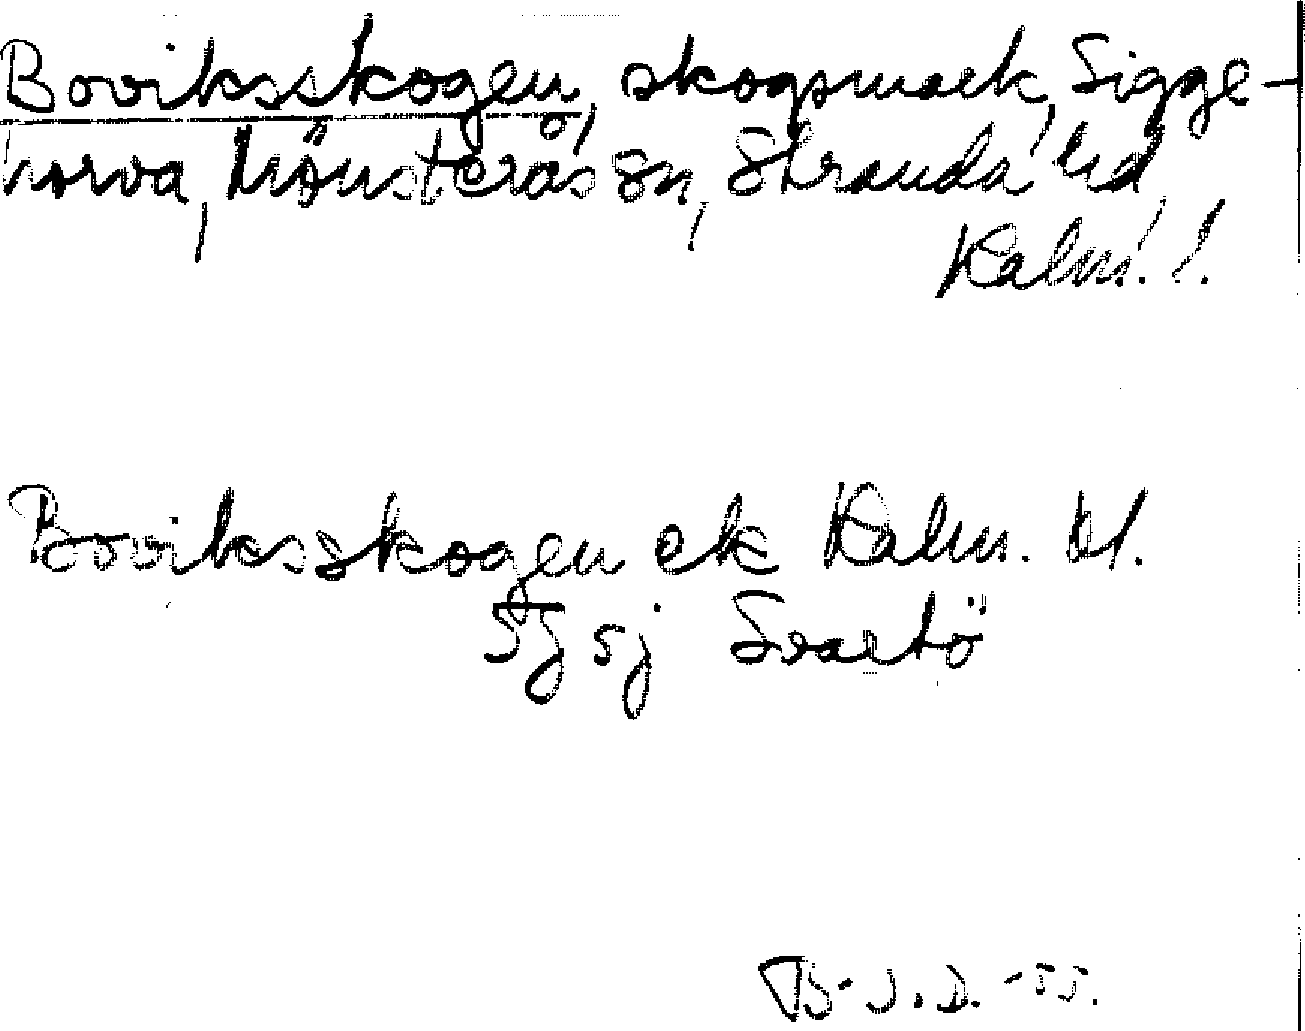 Boviksskogen, skogsmark, Sigge-
horva, Mönsterås sn, Stranda hd,
Kalm. l.
Boviksskogen ek Kalm. bl.
5G 5j Svartö
B-J.D. -55.